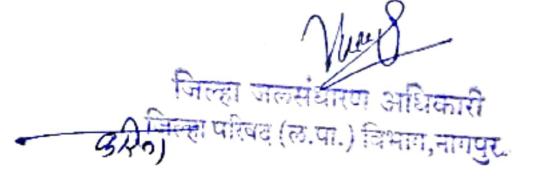 जिल्हा जलसंधारण अधिकारी
करिता जिल्हा परिषद (ल.पा.) विभाग,नागपुर.